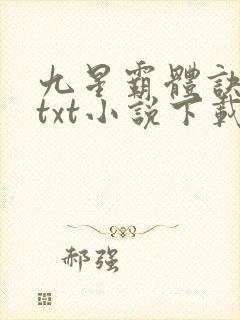 九星霸體訣
txt小說下載
郝强